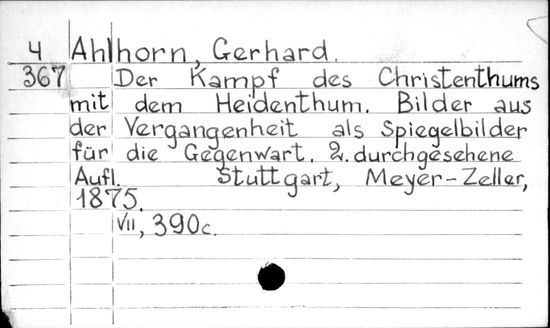 4 Ahlhorn, Gerhard.
367 Der Kampf des Christenthums
mit dem Heidenthum. Bilder aus
der Vergangenheit als Spiegelbilder
für die Gegenwart. 2. durchgesehene
Aufl. Stuttgart, Meyer-Zeller,
1875.
VII, 390c.